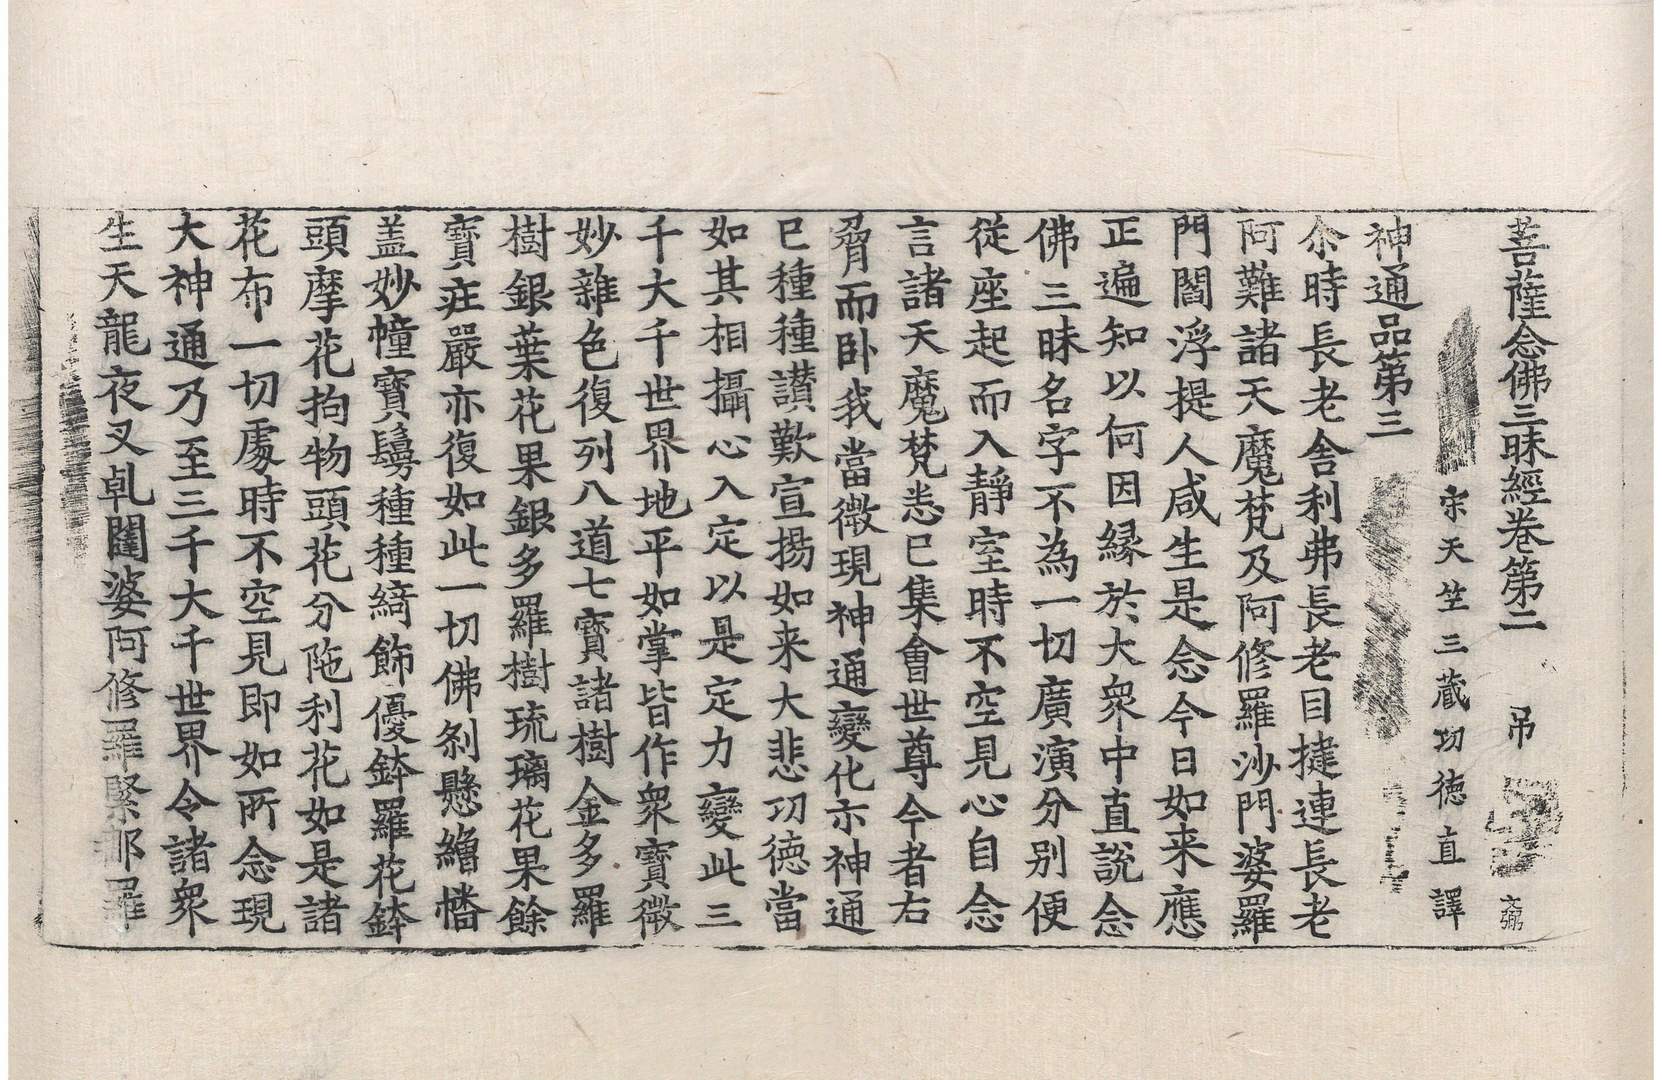 菩薩念佛三昧經卷第二　弔　文弼
宋天竺三藏功德直譯
神通品第三
尒時長老舎利弗長老目揵連長老
阿難諸天魔梵及阿修羅沙門婆羅
門閻浮提人咸生是念今日如来應
正遍知以何因縁於大衆中直說念
佛三昧名字不為一切廣演分別便
従座起而入靜室時不空見心自念
言諸天魔梵悉已集會世尊今者右
脅而卧我當微現神通變化示神通
已種種讃歎宣揚如来大悲功徳當
如其相攝心入定以是定力變此三
千大千世界地平如掌皆作衆寶微
妙雜色復列八道七寶諸樹金多羅
樹銀葉花果銀多羅樹琉璃花果餘
寶庄嚴亦復如此一切佛刹懸繒幡
盖妙幢寶鬘種種綺飾優鉢羅花鉢
頭摩花拘物頭花分陁利花如是諸
花布一切處時不空見即如所念現
大神通乃至三千大千世界令諸衆
生天龍夜叉乹闥婆阿修羅緊那羅